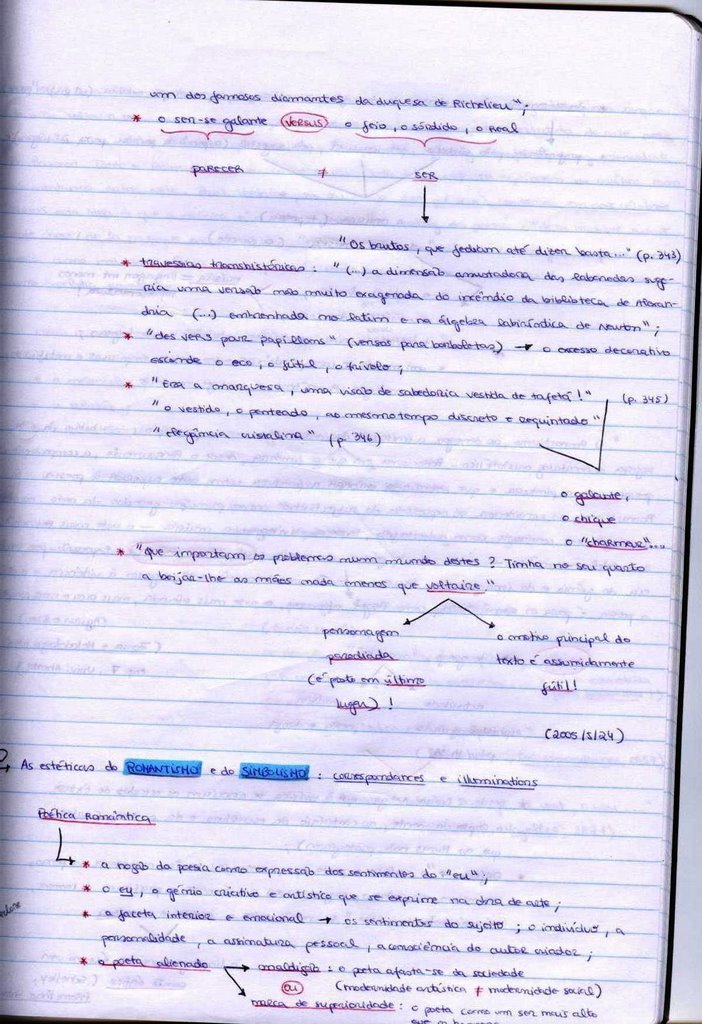 um dos famosos diamantes da duquesa de Richelieu";
* o ser-se galante VERSUS o feio, o sórdido, o real
PARECER ≠ SER
"Os brutos, que fediam até dizer basta..." (p. 343)
* travessias transhistóricas: "(...) a dimensão assustadora das labaredas suge-
ria uma versão não muito exagerada do incêndio da biblioteca de Alexan-
dria (...) embrenhada no latim e na álgebra labiríntica de Newton";
* "des vers pour papillons" (versos para borboletas) → o excesso decorativo
esconde o oco, o fútil, o frívolo;
* "Era a marquesa, uma visão de sabedoria vestida de tafetá!" (p. 345)
"o vestido, o penteado, ao mesmo tempo discreto e requintado"
"elegância cristalina" (p. 346)
o galante,
o chique
o "charmeur"...
* "que importam os problemas num mundo destes? Tinha no seu quarto
a beijar-lhe as mãos nada menos que Voltaire"
personagem o motivo principal do
parodiada texto é assumidamente
(é posto em último fútil!
lugar)!
(2005/5/24)
→ As estéticas do ROMANTISMO e do SIMBOLISMO: correspondances e illuminations
Poética Romântica
* a noção da poesia como expressão dos sentimentos do "eu";
* o eu, o génio criativo e artístico que se exprime na obra de arte;
* a faceta interior e emocional → os sentimentos do sujeito; o indivíduo, a
personalidade, a assinatura pessoal, a consciência do autor criador;
* o poeta alienado → maldição: o poeta afasta-se da sociedade
ou (modernidade artística ≠ modernidade social)
marca de superioridade: o poeta como um ser mais alto
que